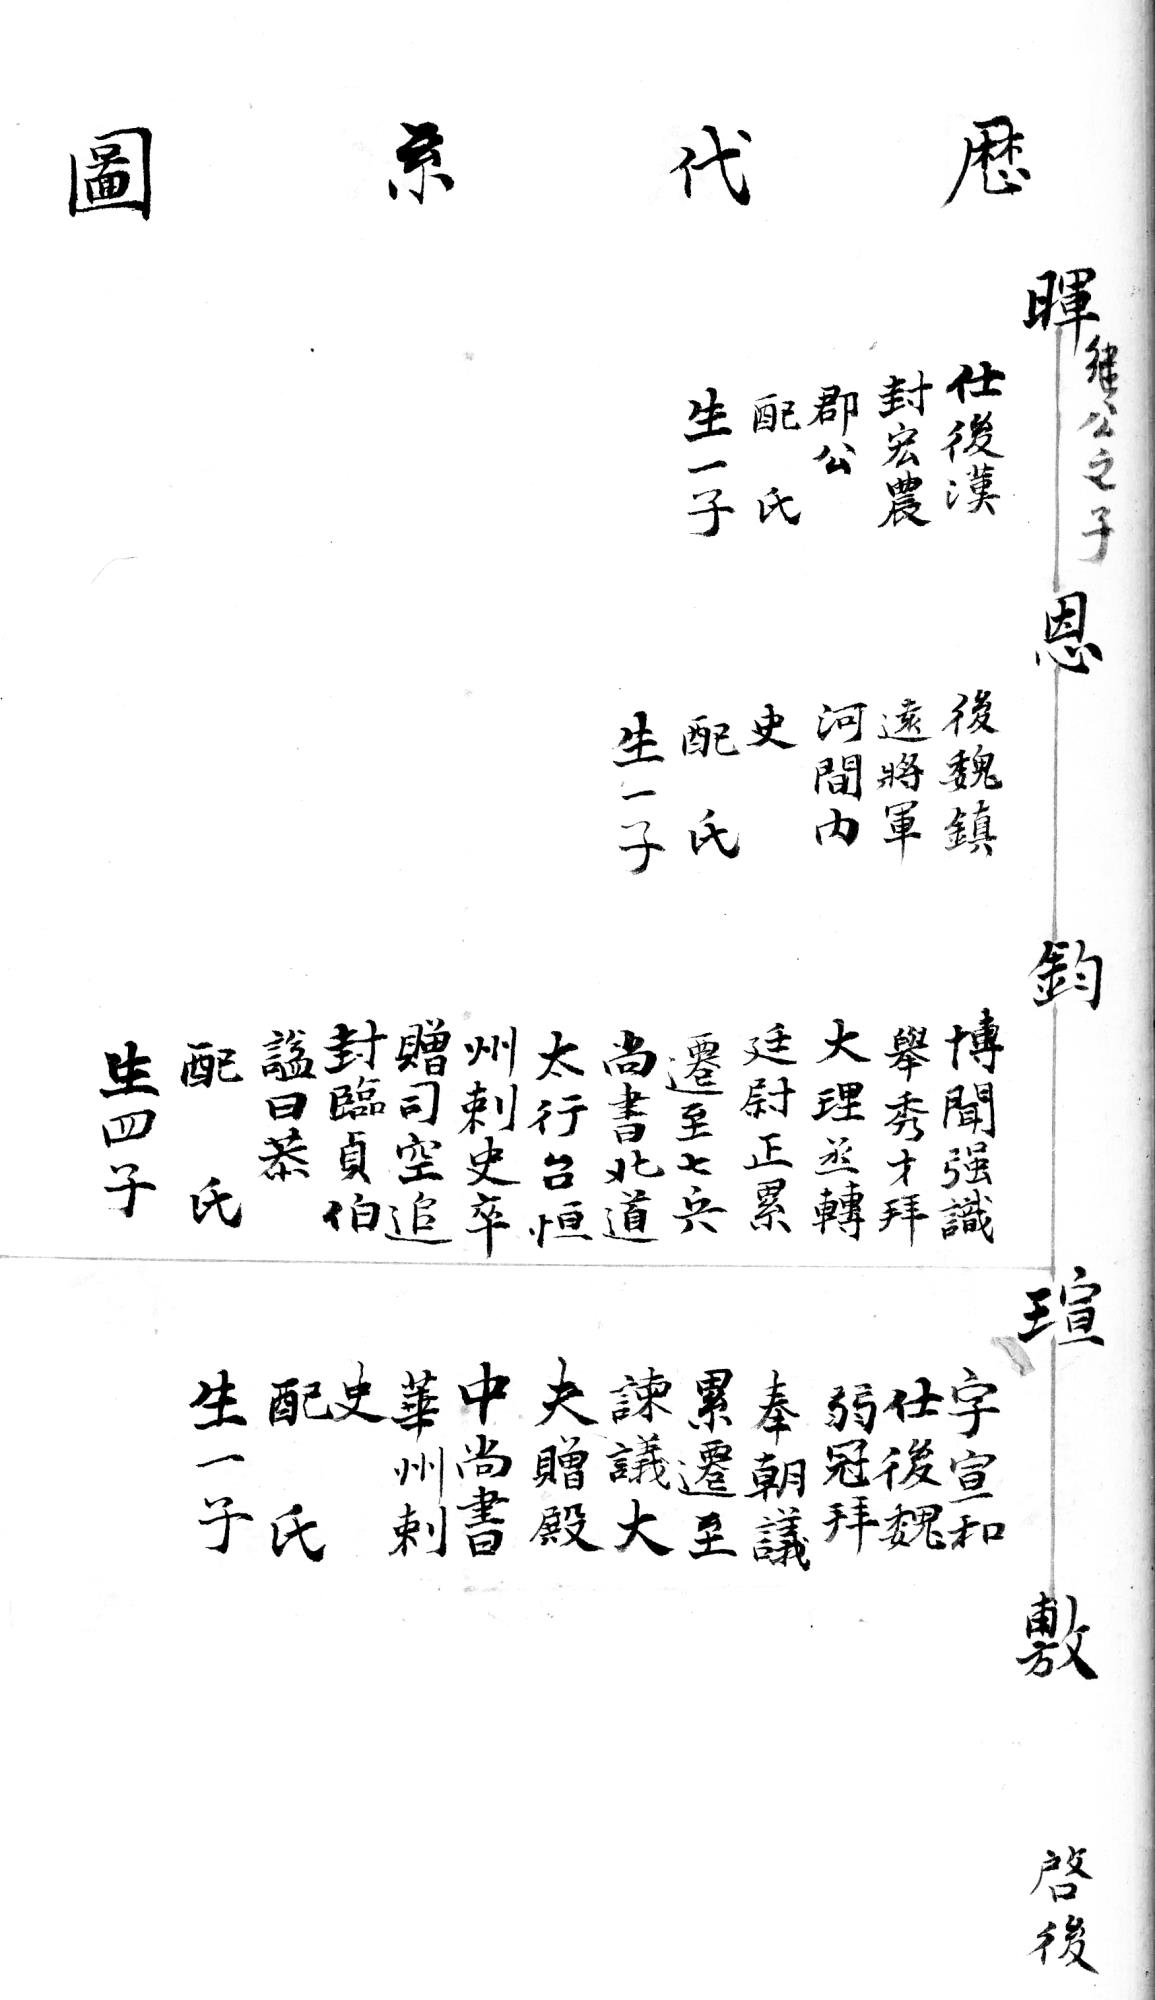 歷代系圖
暉
公之子
仕後漢
封宏農
郡公
配 氏
生一子
恩
後魏鎮
遠將軍
河間內
史
配 氏
生一子
鈞
博聞强識
舉秀才拜
大理丞轉
廷尉正累
遷至七兵
尚書北道
太行台恒
州刺史卒
贈司空追
封臨貞伯
謚曰恭
配 氏
生四子
瑄
字宣和
仕後魏
弱冠拜
奉朝議
累遷至
諫議大
夫贈殿
中尚書
華州刺
史
配 氏
生一子
敷
啓後